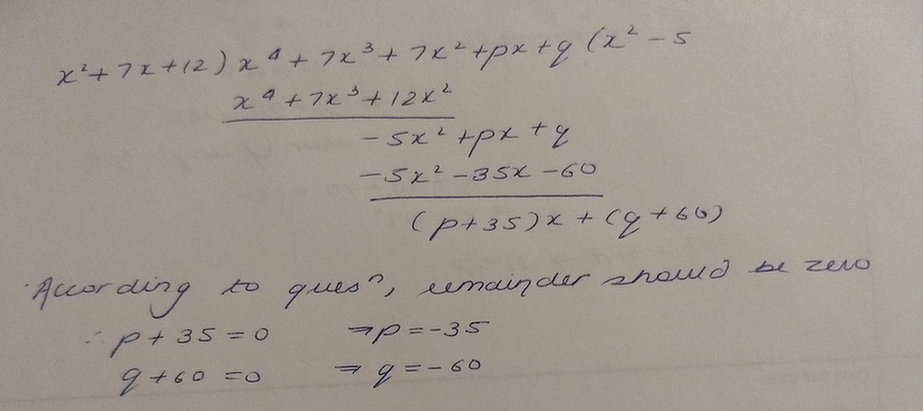 x²+7x+12) x⁴+7x³+7x²+px+q (x²-5
x⁴+7x³+12x²
-5x²+px+q
-5x²-35x-60
(p+35)x+(q+60)
According to quesⁿ, remainder should be zero
∴ p+35=0 ⇒p=-35
q+60=0 ⇒q=-60